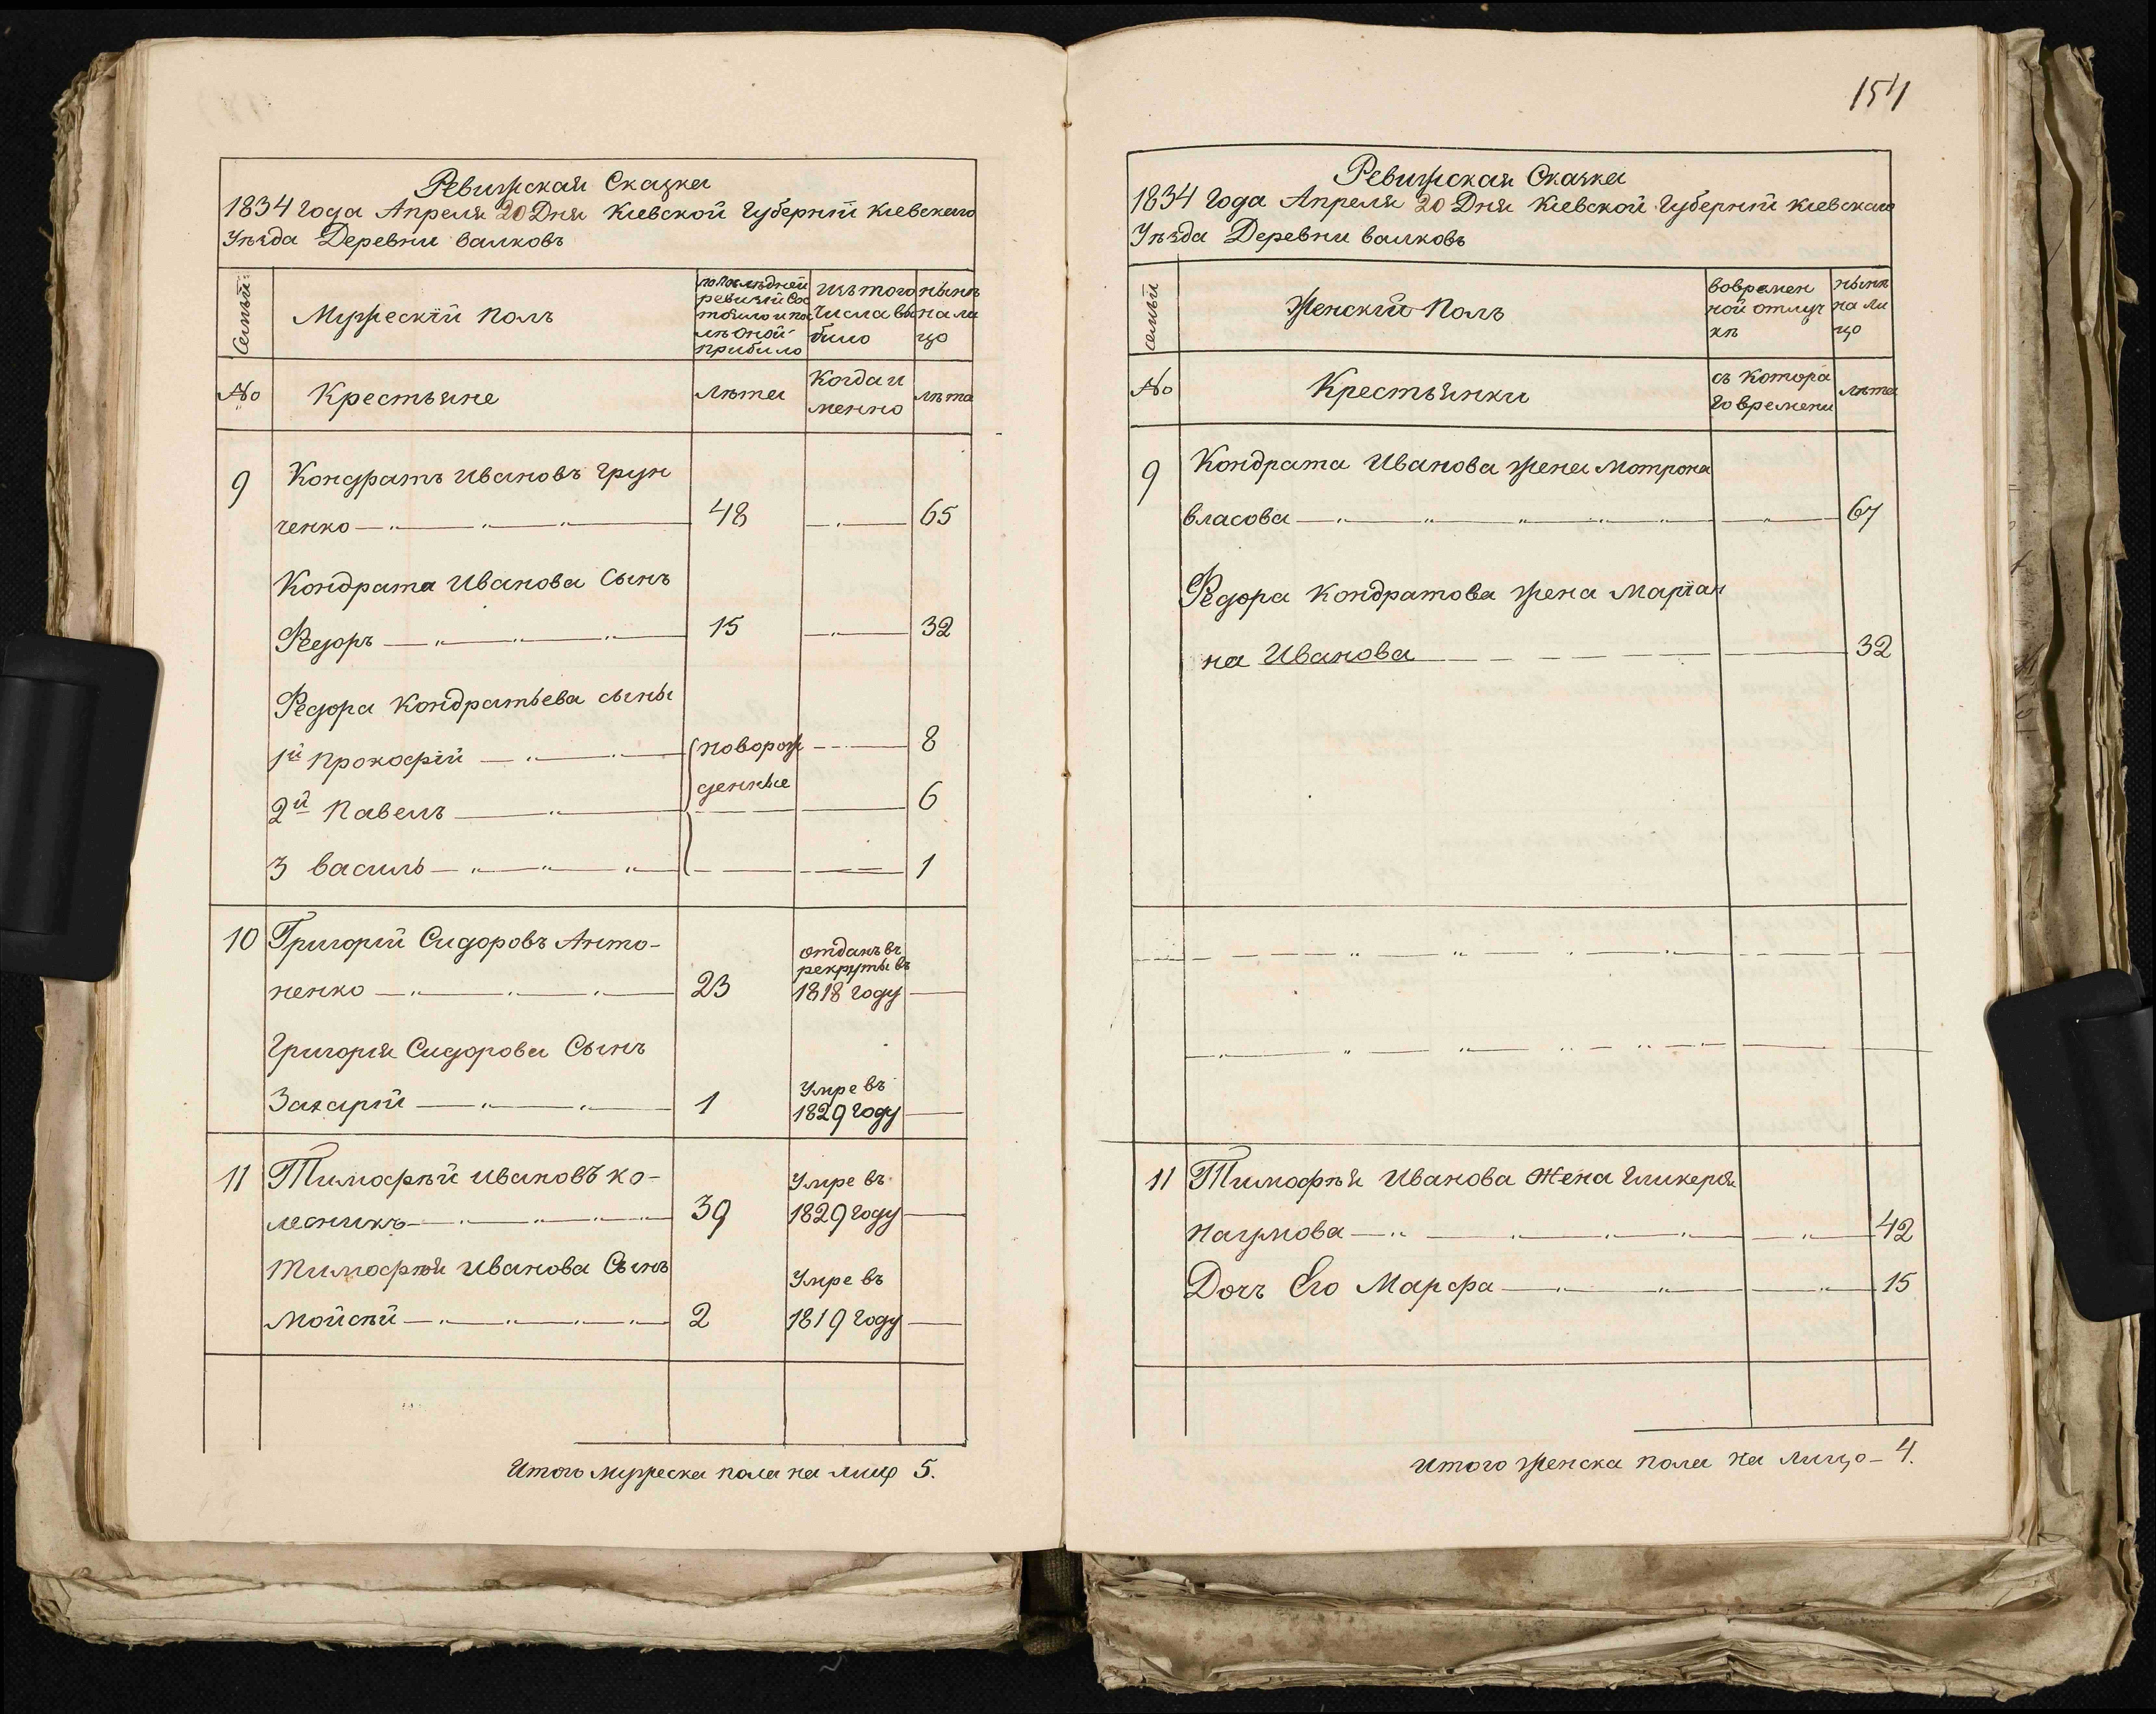 Ревижская Сказка
1834 Года Апреля 20 Дня Кіевской Губерніи Кіевскаго
Уѣзда Деревни Валковъ
Семьи
Мужескій Полъ
по послѣдней
ревизіи Со
тояло и по
лѣ оной
прибило
изъ того
Числа вы
било
нынѣ
на ли
цо
№
Крестьяне
лѣта
Когда и
менно
лѣта
9
Кондратъ Ивановъ Грун
ченко 48 65
Кондрата Иванова Сынъ
Федоръ 15 32
Федора Кондратьева сыны
1й Прокофій новорож 8
денные
2й Павелъ 6
3 Василь 1
10 Григорій Сидоровъ Анто-
ненко 23
отданъ въ
рекруты въ
1818 году
Григорія Сидорова Сынъ
Захарій 1
Умре въ
1829 году
11 Тимофѣй Ивановъ Ко-
лесникъ 39
Умре въ
1829 году
Тимофѣя Иванова Сынъ
Мойсѣй 2
Умре въ
1819 году
Итого мужеска пола на лицо 5.
154
Ревижская Сказка
1834 Года Апреля 20 Дня Кіевской Губерніи Кіевскаго
Уѣзда Деревни Валковъ
семьи
Женскій Полъ
вовремен
ной отлуч
кѣ
нынѣ
на ли
цо
№
Крестьянки
съ котора
го времени
лѣта
9
Кондрата Иванова жена Мотрона
Власова 67
Федора Кондратова жена Маріан
на Иванова 32
11 Тимофѣя Иванова Жена Гликерія
Наумова 42
Дочъ Его Марфа 15
Итого женска пола на лицо - 4.